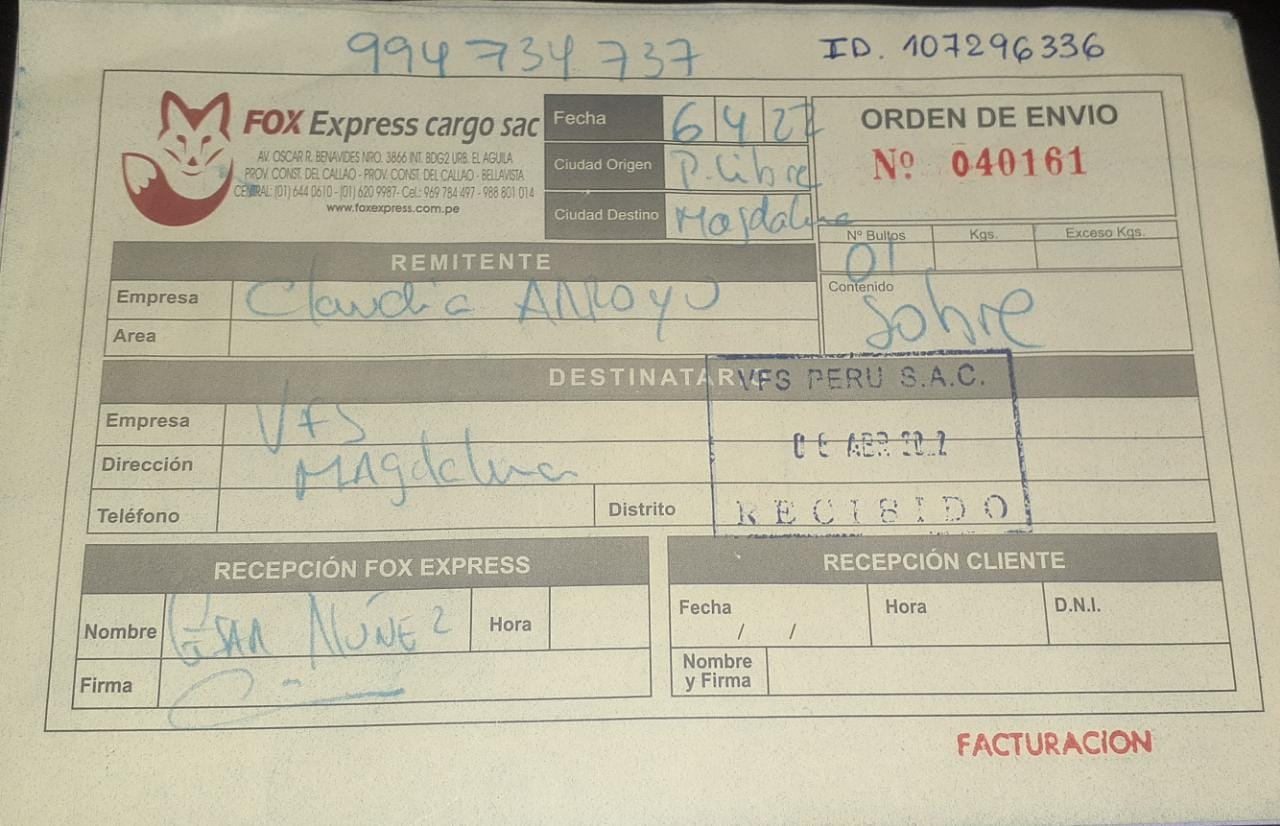 994 734 737
ID. 107296336
FOX Express cargo sac
AV. OSCAR R. BENAVIDES NRO. 3866 INT. BDG2 URB. EL AGUILA
PROV. CONST. DEL CALLAO - PROV. CONST. DEL CALLAO - BELLAVISTA
CENTRAL: (01) 644 0610 - (01) 620 9987- Cel.: 969 784 497 - 988 801 014
www.foxexpress.com.pe
Fecha 6 4 22
Ciudad Origen P. Libre
Ciudad Destino Magdalena
ORDEN DE ENVIO
Nº 040161
Nº Bultos Kgs. Exceso Kgs.
01
Contenido
Sobre
REMITENTE
Empresa Claudia Arroyo
Area
DESTINATARIO
Empresa VFS
Dirección Magdalena
Teléfono
Distrito
VFS PERU S.A.C.
ABR
RECIBIDO
RECEPCIÓN FOX EXPRESS
Nombre César Núñez Hora
Firma
RECEPCIÓN CLIENTE
Fecha Hora D.N.I.
/ /
Nombre
y Firma
FACTURACION